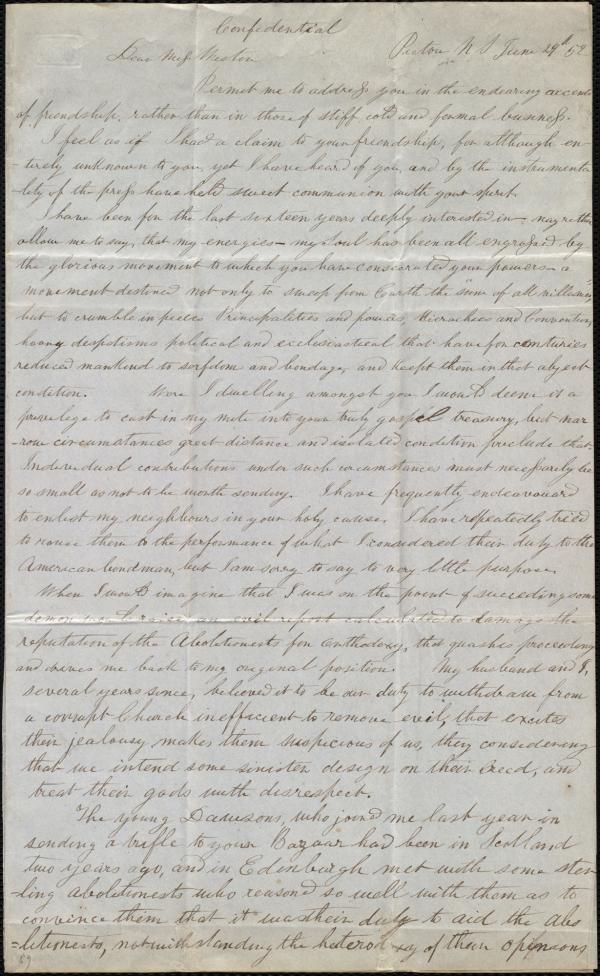 Confidential
Dear Miss Weston Pictou N S June 29th 52
Permit me to address you in the endearing accents
of friendship, rather than in those of stiff cold and formal business.
I feel as if I had a claim to your friendship, for although en-
-tirely unknown to you, yet I have heard of you, and by the instrumenta
-lity of the press have held sweet communion with your spirit.
I have been for the last sixteen years deeply interested in - nay rather
allow me to say, that my energies - my soul has been all engrossed by
the glorious movement to which you have consecrated your powers - a
movement destined not only to sweep from Earth the "sum of all villanies"
but to crumble in pieces Principalities and powers, Hierachees and Conventions,
hoary despotisms political and ecclesiastical that have for centuries
reduced mankind to serfdom and bondage, and keept them in that abject
condition. Were I dwelling amongst you I would deem it a
privelege to cast in my mite into your truly gospel treasury, but nar
-row circumstances great distance and isolated condition preclude that.
Indevidual contributions under such circumstances must necessarily be
so small as not to be worth sending. I have frequently endeavoured
to enlist my neighbours in your holy cause, I have repeatedly tried
to rouse them to the performance of what I considered their duty to the
American bondman, but I am sorry to say to very little purpose.
When I would imagine that I was on the point of succeding some
demon would raise an evil report calculated to damage the
reputation of the Abolitionests for Orthodoxy, that quashes proceedings
and drives me back to my original position. My husband and I,
several years since, believed it to be our duty to withdraw from
a corrupt Church inefficient to remove evil, that excites
their jealousy, makes them suspicious of us, they considering
that we intend some sinister design on their Creed, and
treat their gods with disrespect.
The young Dawsons, who joined me last year in
sending a trifle to your Bazaar had been in Scotland
two years ago, and in Edinburgh met with some ster
-ling abolitionests who reasoned so well with them as to
convince them that it was their duty to aid the abo
=litionests, notwithstanding the heterodoxy of their opinions